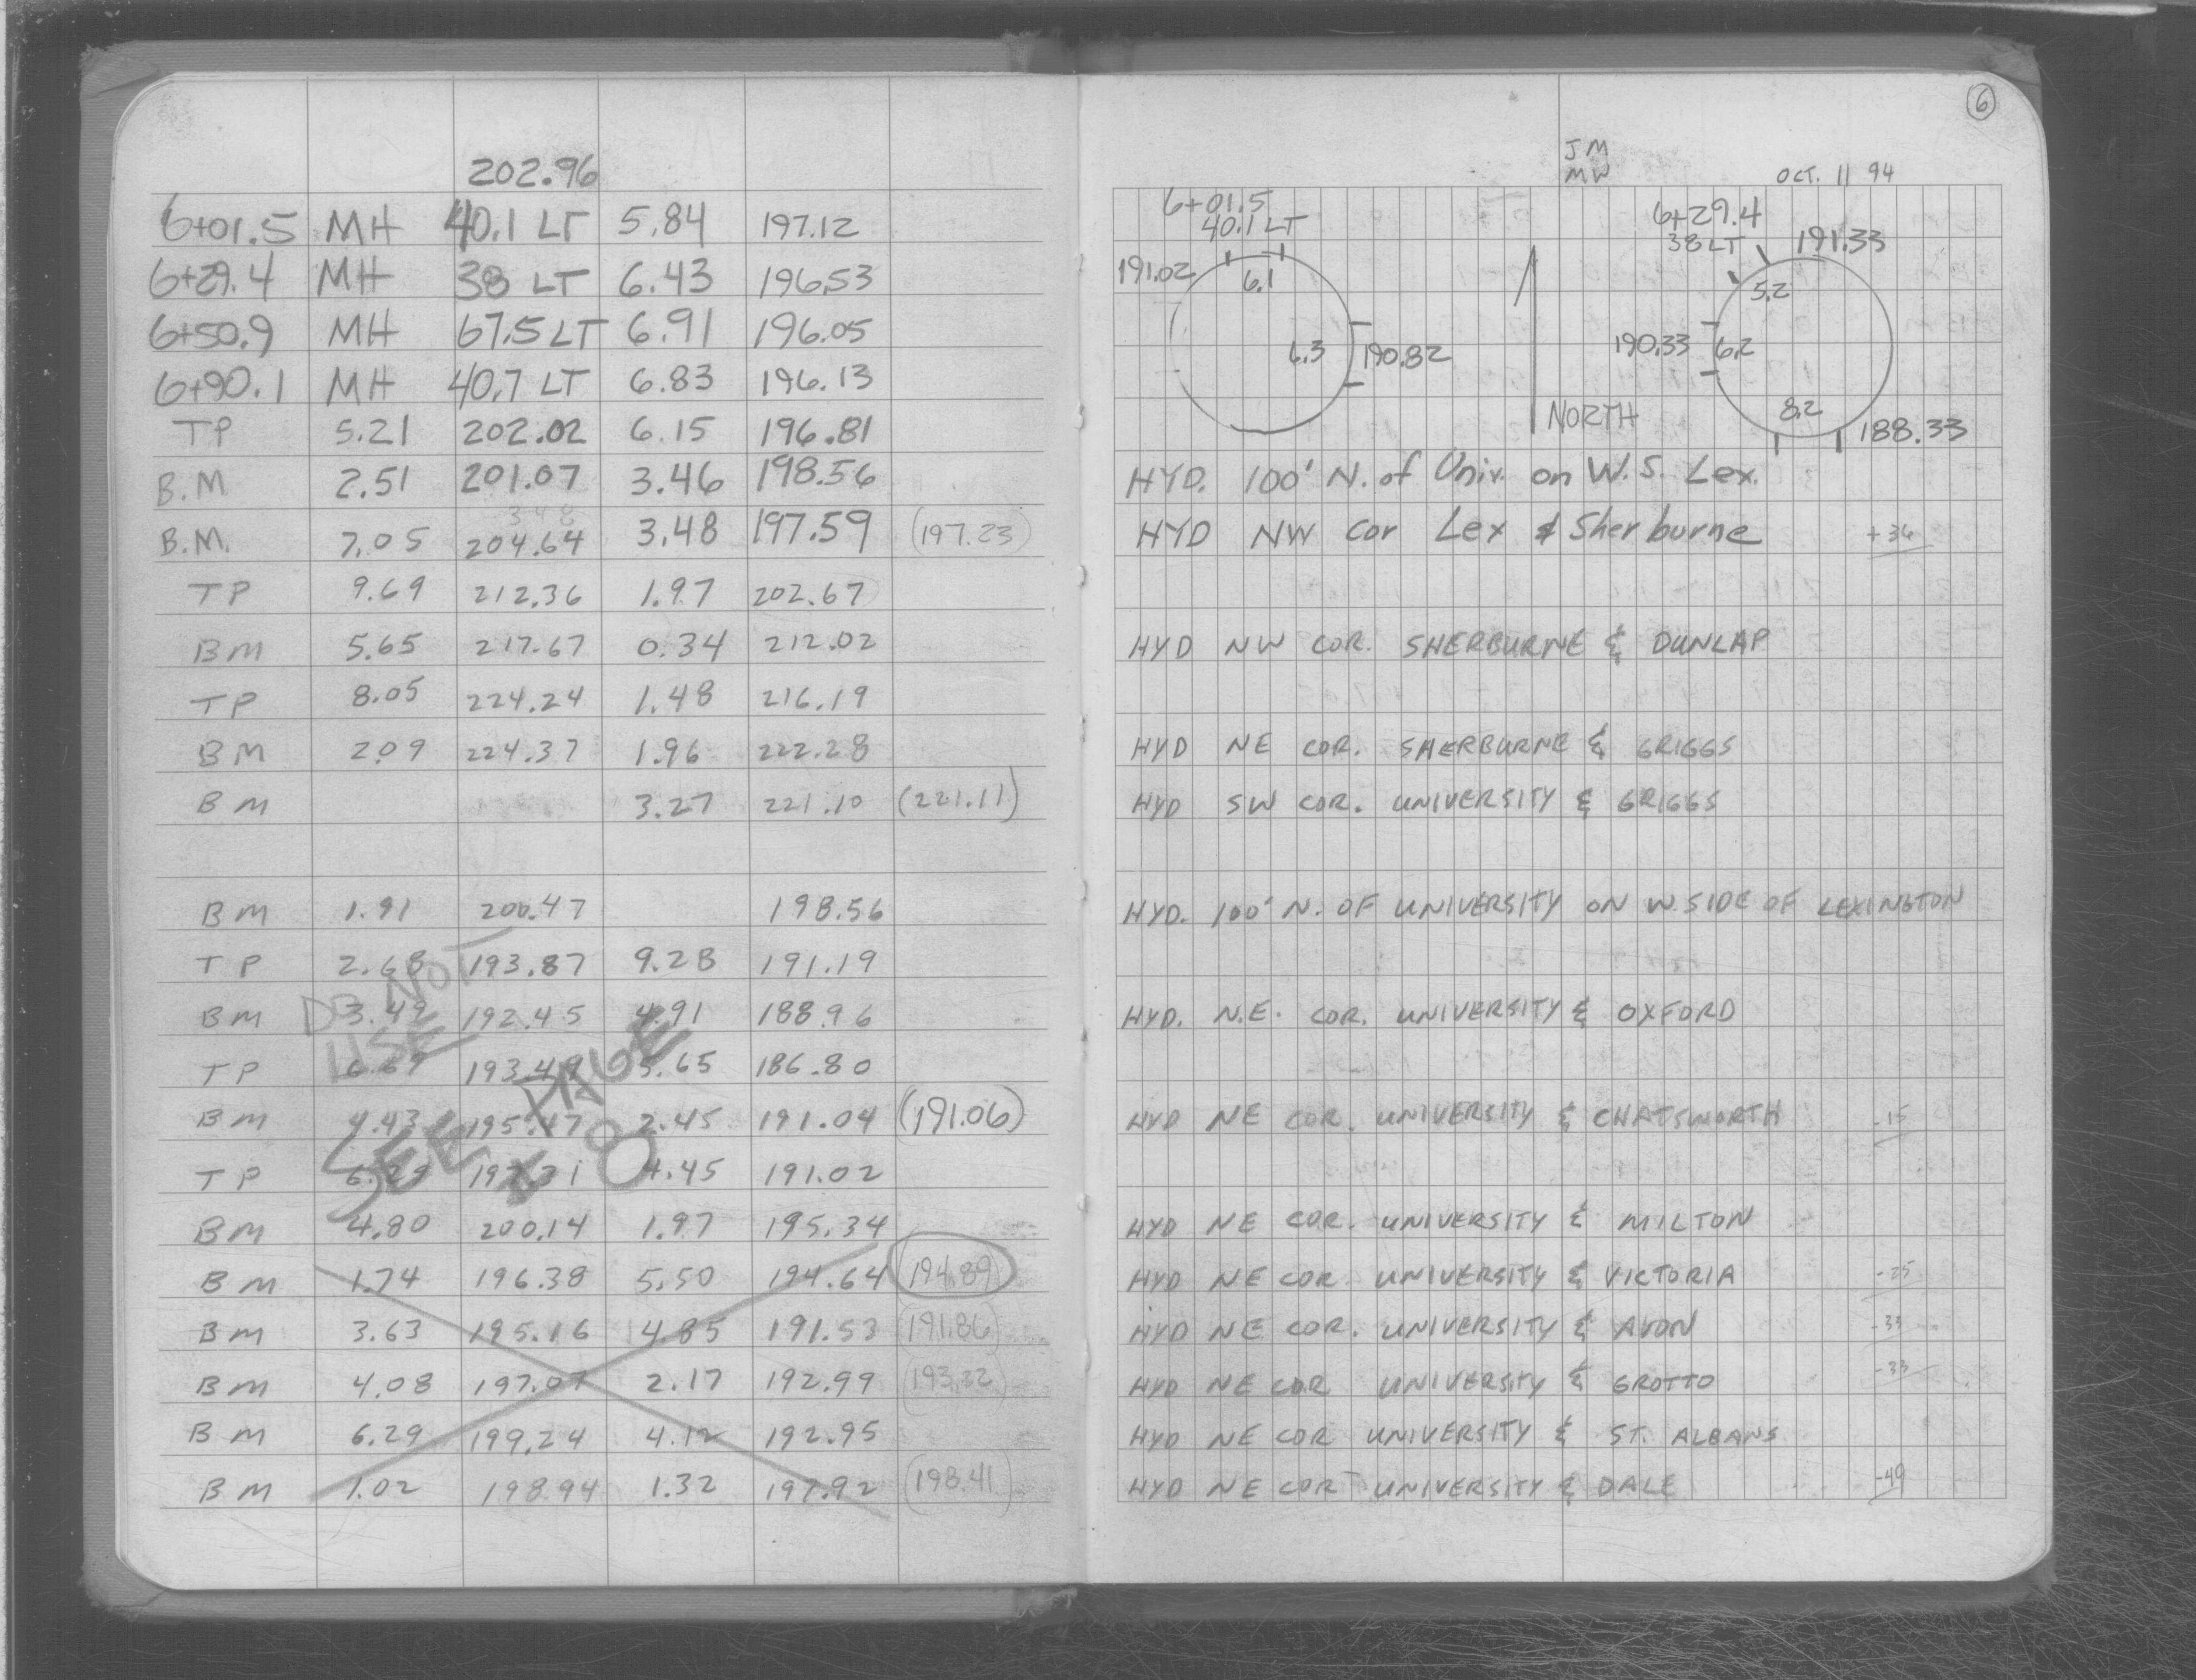 202.96
6+01.5 MH 40.1 LT 5.84 197.12
6+29.4 MH 38 LT 6.43 196.53
6+50.9 MH 67.5 LT 6.91 196.05
6+90.1 MH 40.7 LT 6.83 196.13
TP 5.21 202.02 6.15 196.81
B.M 2.51 201.07 3.46 198.56
B.M. 7.05 204.64 3.48 197.59 (197.23)
TP 9.69 212.36 1.97 202.67
BM 5.65 217.67 0.34 212.02
TP 8.05 224.24 1.48 216.19
BM 2.09 224.37 1.96 222.28
BM 3.27 221.10 (221.11)
BM 1.91 200.47 198.56
TP 2.68 193.87 9.28 191.19
BM 3.49 192.45 4.91 188.96
TP 6.69 193.49 5.65 186.80
BM 4.43 195.47 2.45 191.04 (191.06)
TP 6.29 197.31 4.45 191.02
BM 4.80 200.14 1.97 195.34
BM 1.74 196.38 5.50 194.64 (194.89)
BM 3.63 195.16 4.85 191.53 (191.86)
BM 4.08 197.07 2.17 192.99 (193.32)
BM 6.29 199.24 4.12 192.95
BM 1.02 198.94 1.32 197.92 (198.41)
DO NOT
USE
SEE PAGE
# 8
6
JM
MW
OCT. 11 94
6+01.5
40.1 LT
191.02
6.1
6.3
190.82
NORTH
6+29.4
38 LT
191.33
5.2
190.33
6.2
8.2
188.33
HYD. 100' N. of Univ. on W.S. Lex.
HYD NW cor Lex & Sherburne +36
HYD NW COR. SHERBURNE & DUNLAP
HYD NE COR. SHERBURNE & GRIGGS
HYD SW COR. UNIVERSITY & GRIGGS
HYD. 100' N. OF UNIVERSITY ON W. SIDE OF LEXINGTON
HYD. N.E. COR. UNIVERSITY & OXFORD
HYD NE COR. UNIVERSITY & CHATSWORTH -15
HYD NE COR. UNIVERSITY & MILTON
HYD NE COR. UNIVERSITY & VICTORIA -25
HYD NE COR. UNIVERSITY & AVON -33
HYD NE COR UNIVERSITY & GROTTO -33
HYD NE COR UNIVERSITY & ST. ALBANS
HYD NE COR UNIVERSITY & DALE -49